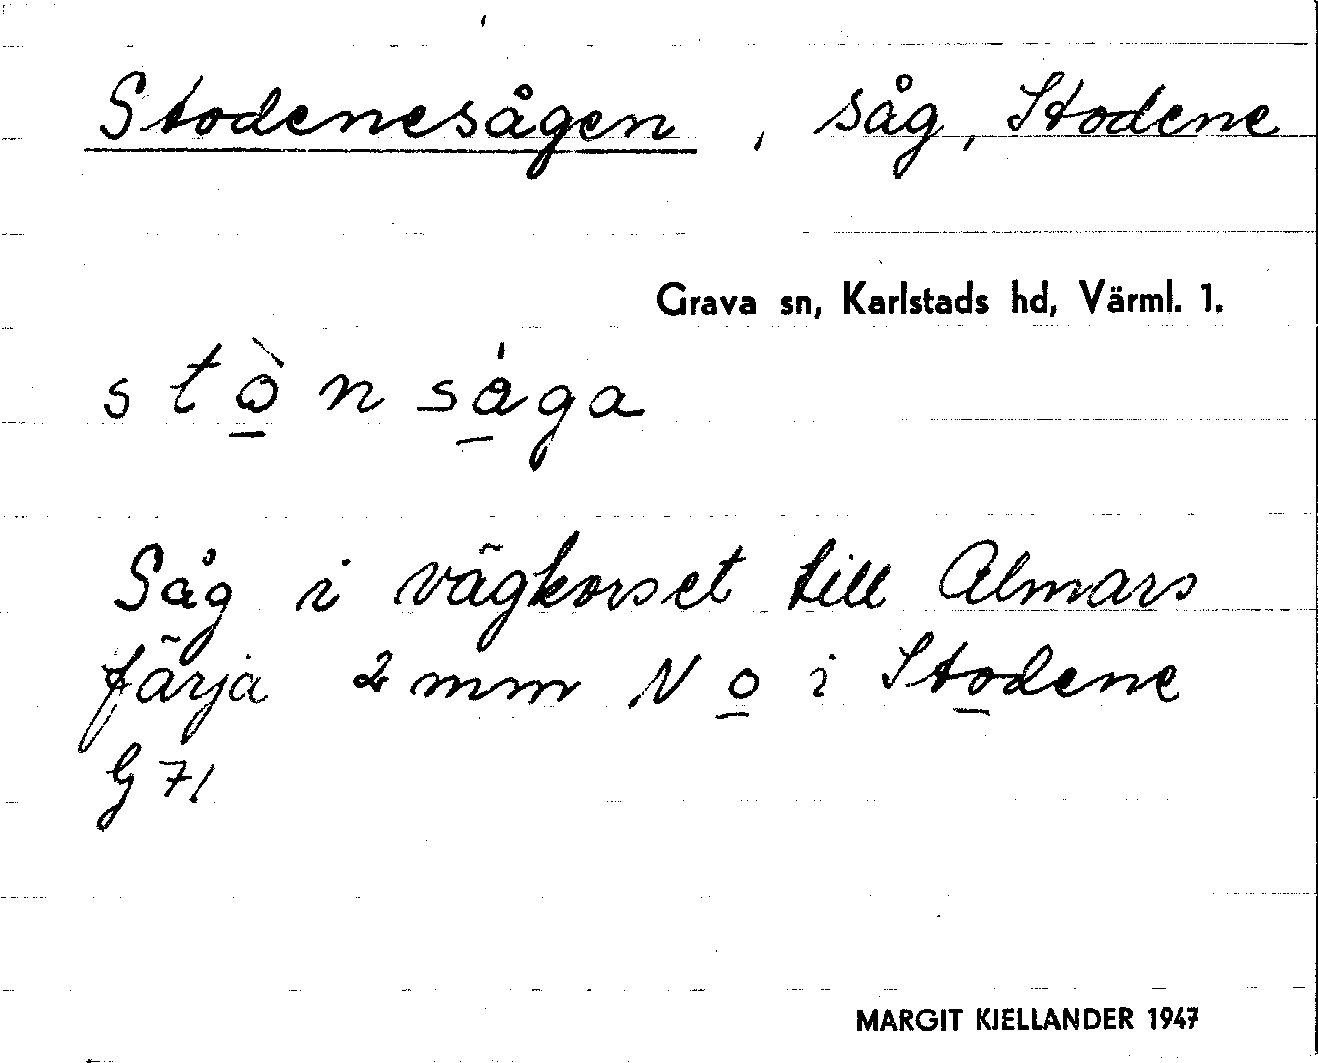 Stodenesågen, såg, Stodene
Grava sn, Karlstads hd, Värml. 1.
stò̱nsá̱ga
Såg i vägkorset till Almars
färja 2 mm N o̱ i Sto̱dene
G 71
MARGIT KJELLANDER 1947